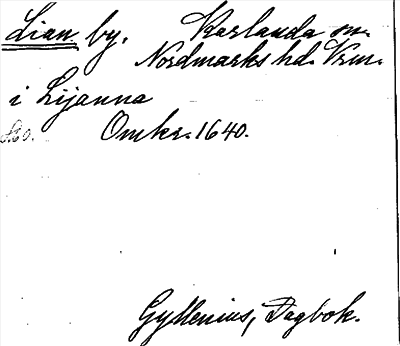 Lian by. Karlanda sn.
Nordmarks hd. Vrm.
i Lijanna
Omkr. 1640.
Gyllenius, Dagbok.